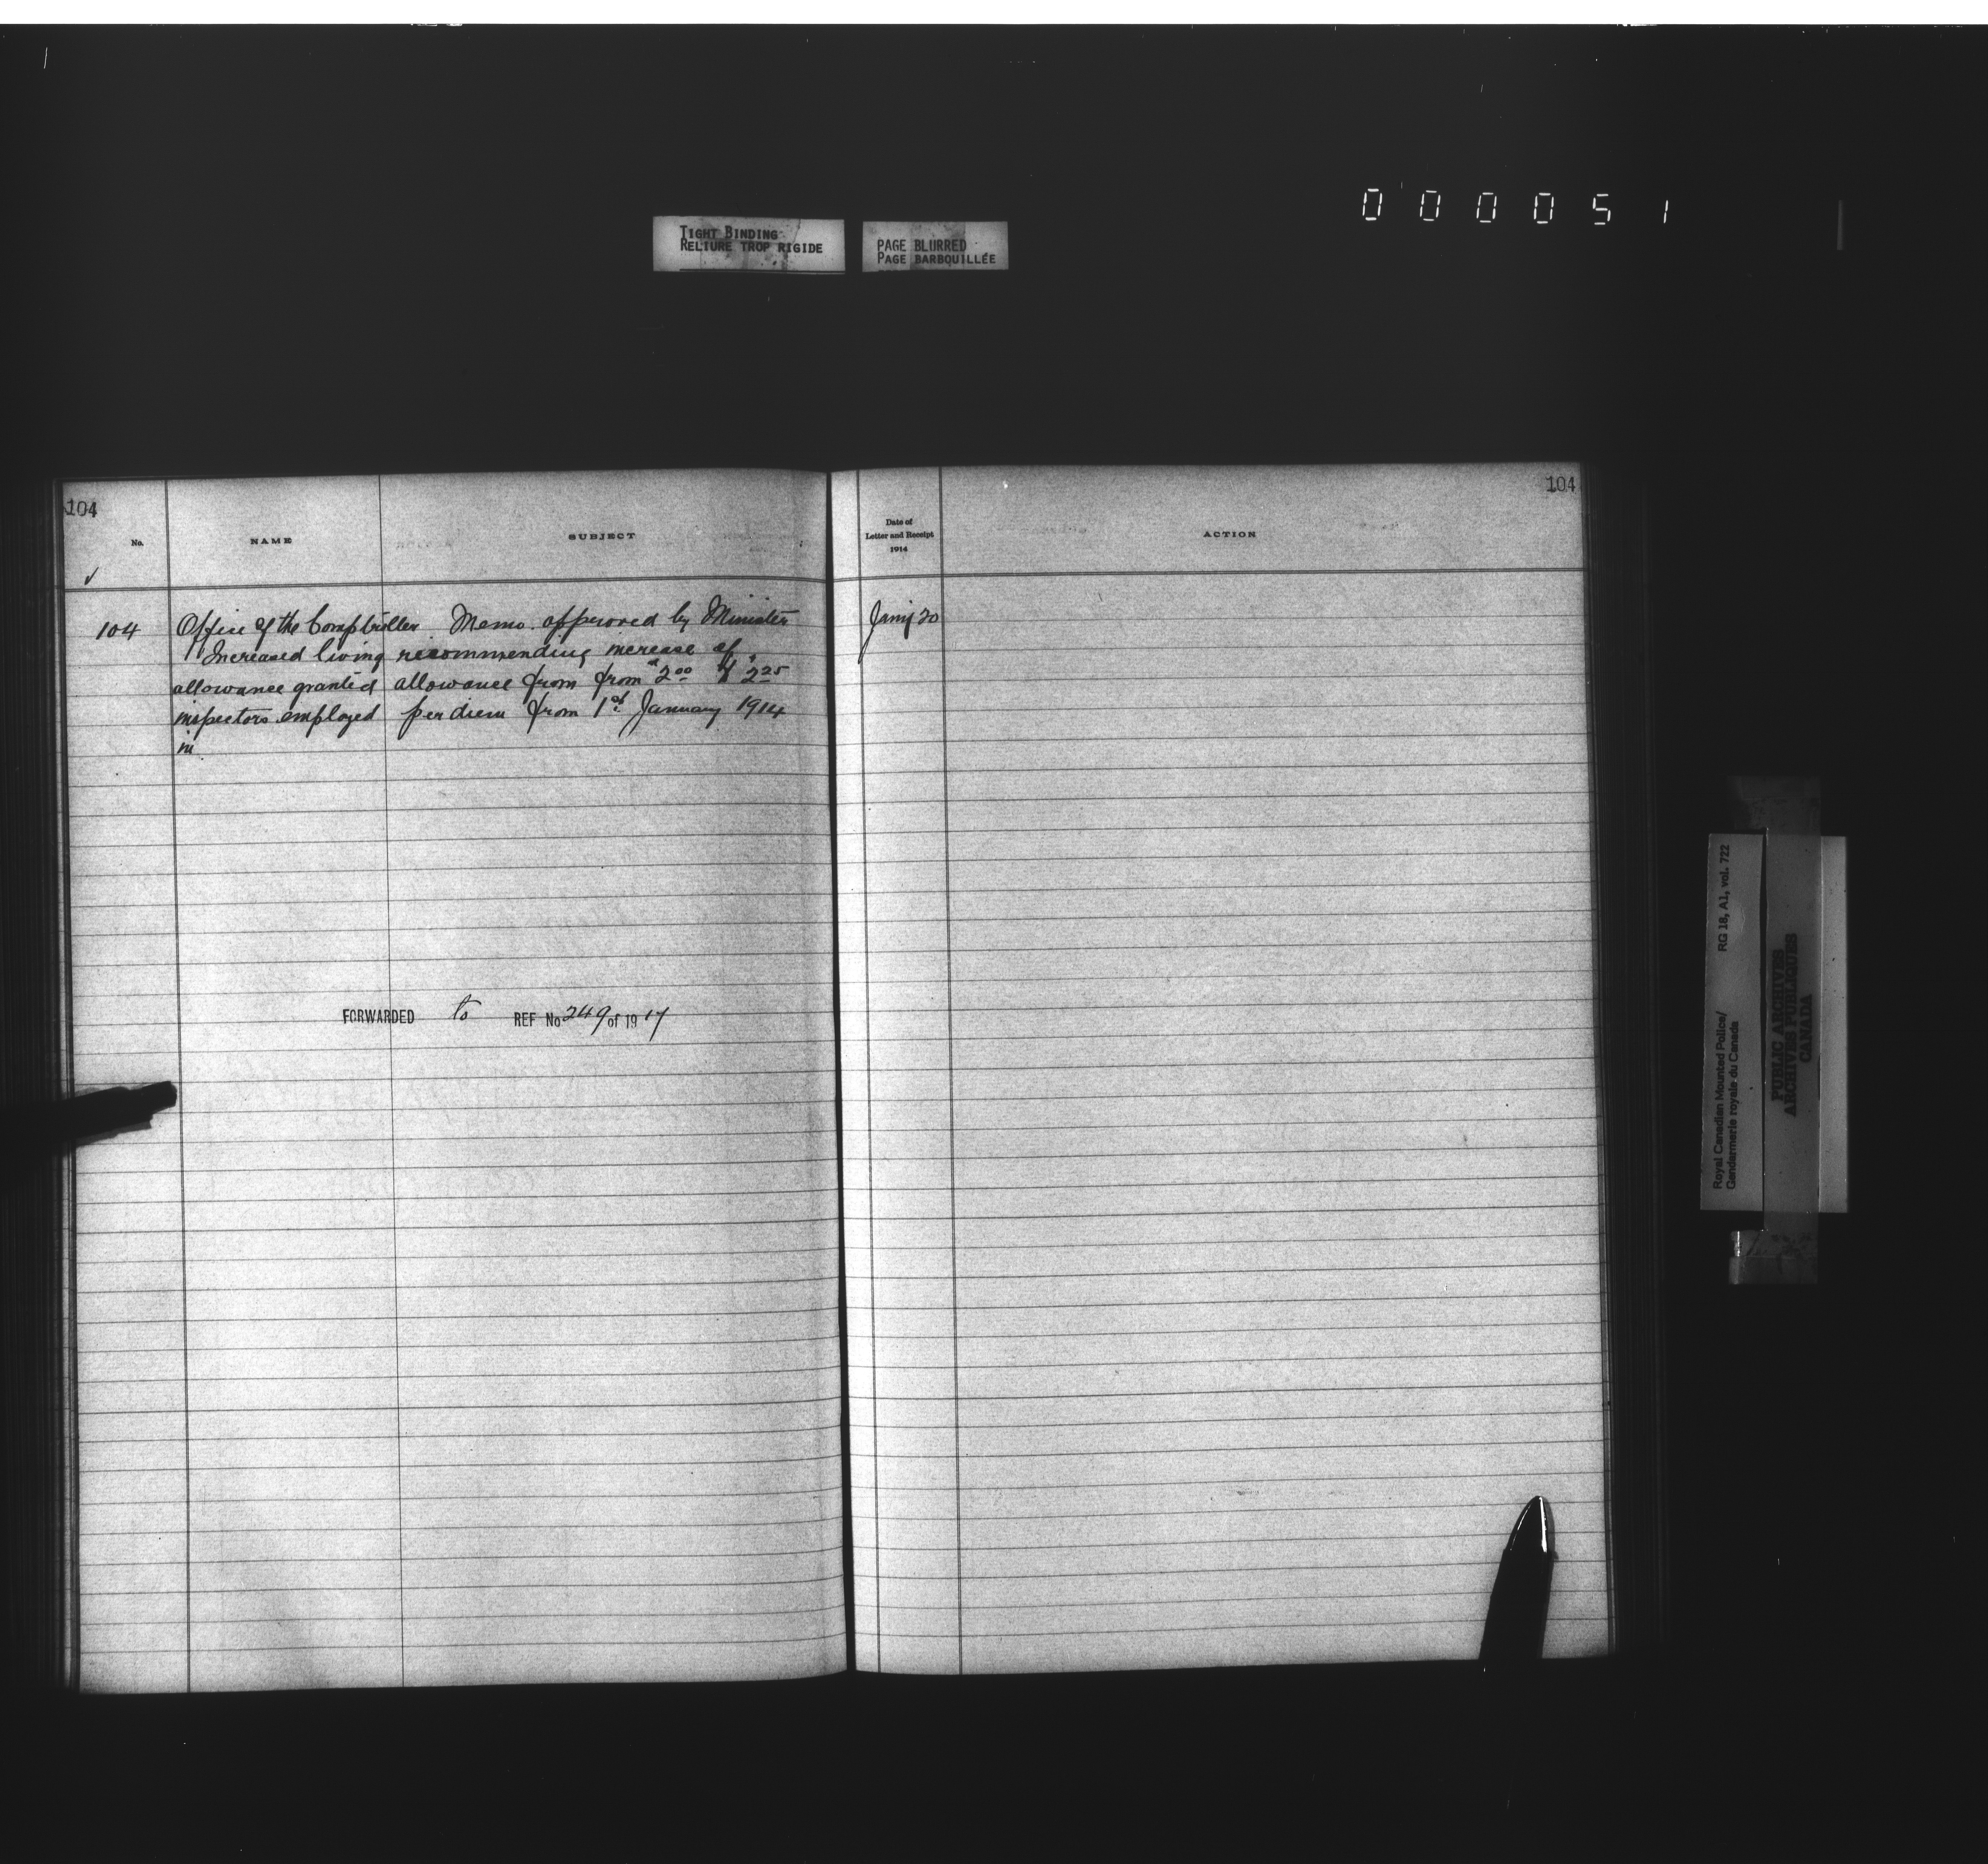 000051
TIGHT BINDING
RELIURE TROP RIGIDE
PAGE BLURRED
PAGE BARBOUILLÉE
104
No.
NAME
SUBJECT
✓
104
Office of the Comptroller
Increased living
allowance granted
inspectors employed
in
Memo. approved by Minister
recommending increase of
allowance from from $2.00 to $2.25
per diem from 1st January 1914
FORWARDED to REF No 249 of 1917
104
Date of
Letter and Receipt
1914
ACTION
Jany 20
Royal Canadian Mounted Police/
Gendarmerie royale du Canada
RG 18, A1, vol. 722
PUBLIC ARCHIVES
ARCHIVES PUBLIQUES
CANADA